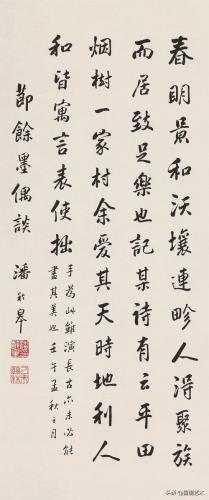 春明景和沃壤連畛人得聚族
而居致足樂也記某詩有云平田
烟樹一家村余愛其天時地利人
和皆寓言表使拙
手為此雖演長古亦未必能
盡其美也 壬午孟秋之月
節餘墨偶談 潘齡皋
头条@翰墨艺术